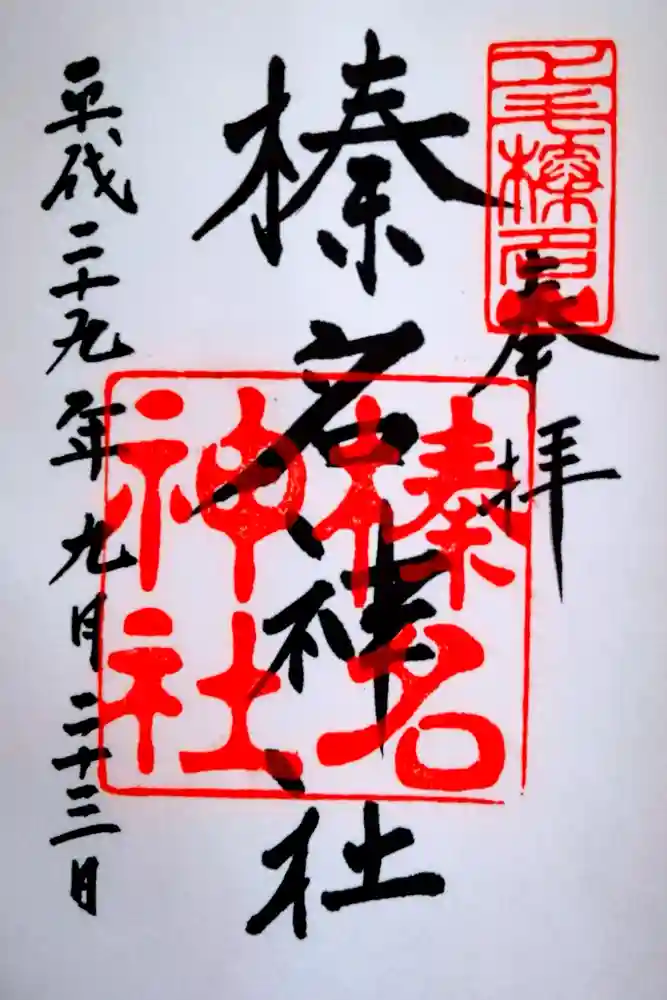 奉拝
榛名神社
平成二十九年九月二十三日
上毛榛名山
榛名
神社